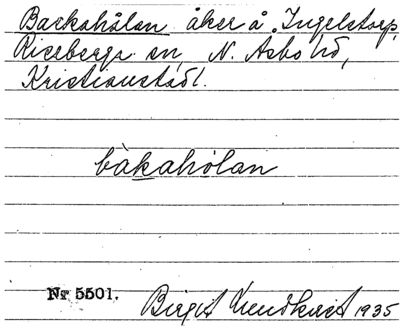 Backahålan åker å Ingelstorp,
Riseberga sn, N. Åsbo hd,
Kristianstad l.
bàkahólan
Nr 5501.
Birgit Lundkvist 1935